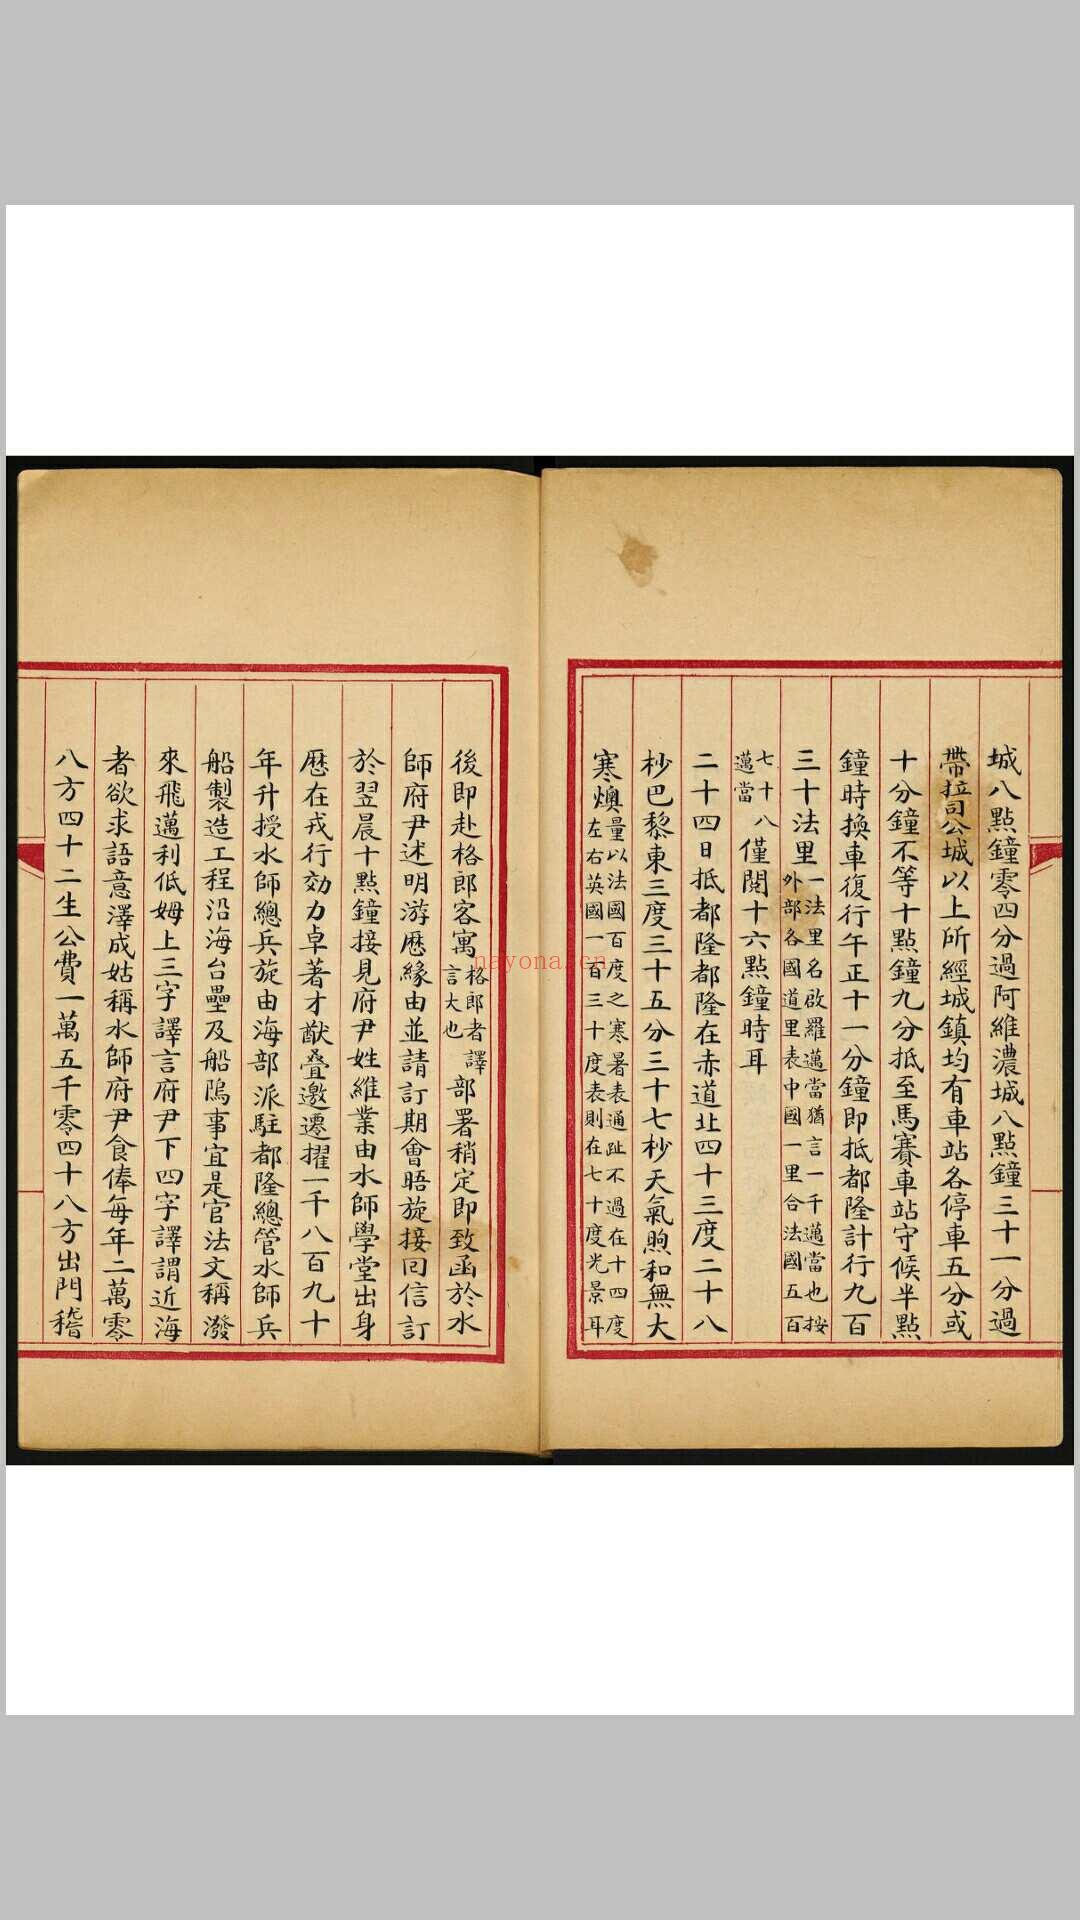 城八點鐘零四分過阿維濃城八點鐘三十一分過
帶拉司公城以上所經城鎮均有車站各停車五分或
十分鐘不等十點鐘九分抵至馬賽車站守候半點
鐘時換車復行午正十一分鐘即抵都隆計行九百
三十法里一法里名啟羅邁當猶言一千邁當也按
外部各國道里表中國一里合法國五百
七十八
邁當僅閱十六點鐘時耳
二十四日抵都隆都隆在赤道北四十三度二十八
杪巴黎東三度三十五分三十七杪天氣煦和無大
寒燠量以法國百度之寒暑表通趾不過在十四度
左右英國一百三十度表則在七十度光景耳
後即赴格郎客寓格郎者譯
言大也部署稍定即致函於水
師府尹述明游歷緣由並請訂期會晤旋接回信訂
於翌晨十點鐘接見府尹姓維業由水師學堂出身
歷在戎行効力卓著才猷叠邀遷擢一千八百九十
年升授水師總兵旋由海部派駐都隆總管水師兵
船製造工程沿海台壘及船塢事宜是官法文稱潑
來飛邁利低姆上三字譯言府尹下四字譯謂近海
者欲求語意澤成姑稱水師府尹食俸每年二萬零
八方四十二生公費一萬五千零四十八方出門稽
nayona.cn